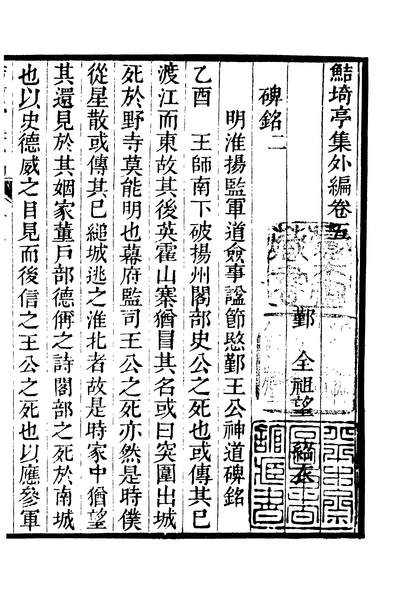 鮚埼亭集外編卷五
鄞 全祖望 紹衣
碑銘二
明淮揚監軍道僉事謚節愍鄞王公神道碑銘
乙酉 王師南下破揚州閣部史公之死也或傳其已
渡江而東故其後英霍山寨猶冒其名或曰突圍出城
死於野寺莫能明也幕府監司王公之死亦然是時僕
從星散或傳其已縋城逃之淮北者故是時家中猶望
其還見於其姻家董戶部德偁之詩閣部之死於南城
也以史德威之目見而後信之王公之死也以應參軍